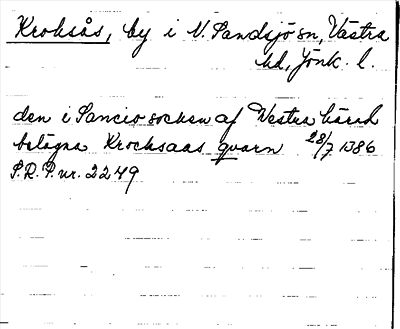 Kroksås, by i N. Sandsjö sn, Västra
hd, Jönk. l.
den i Sancio socken af Westra härad
belägna Krocksaas qvarn 28/7 1386
S.R.P. nr. 2249